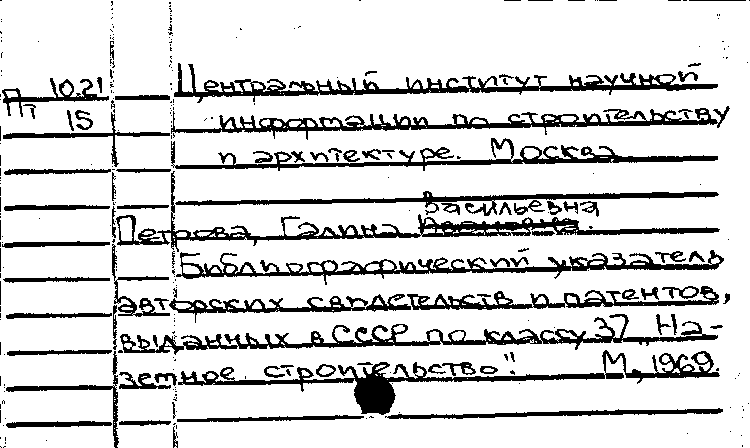 10.21 Центральный институт научной
Пт 15 информации по строительству
и архитектуре. Москва
Васильевна
Петрова, Галина Ивановна.
Библиографический указатель
авторских свидетельств и патентов,
выданных в СССР по классу 37 „На-
земное строительство". М., 1969.